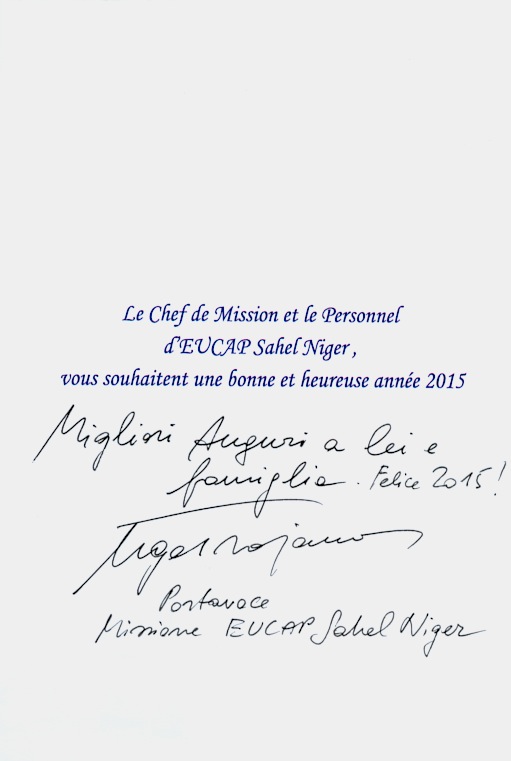 Le Chef de Mission et le Personnel
d'EUCAP Sahel Niger,
vous souhaitent une bonne et heureuse année 2015
Migliori Auguri a lei e
famiglia. Felice 2015!
Portavoce
Missione EUCAP Sahel Niger